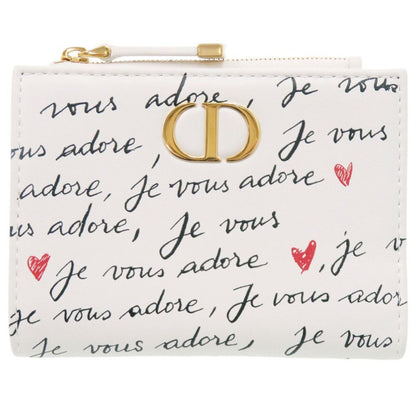 vous adore, Je vous
CD
ous adore, Je vous
us adore, Je vous adore
us adore, Je vous
Je vous adore, je vo
e vous adore, Je vous adore
Je vous adore, Je vous